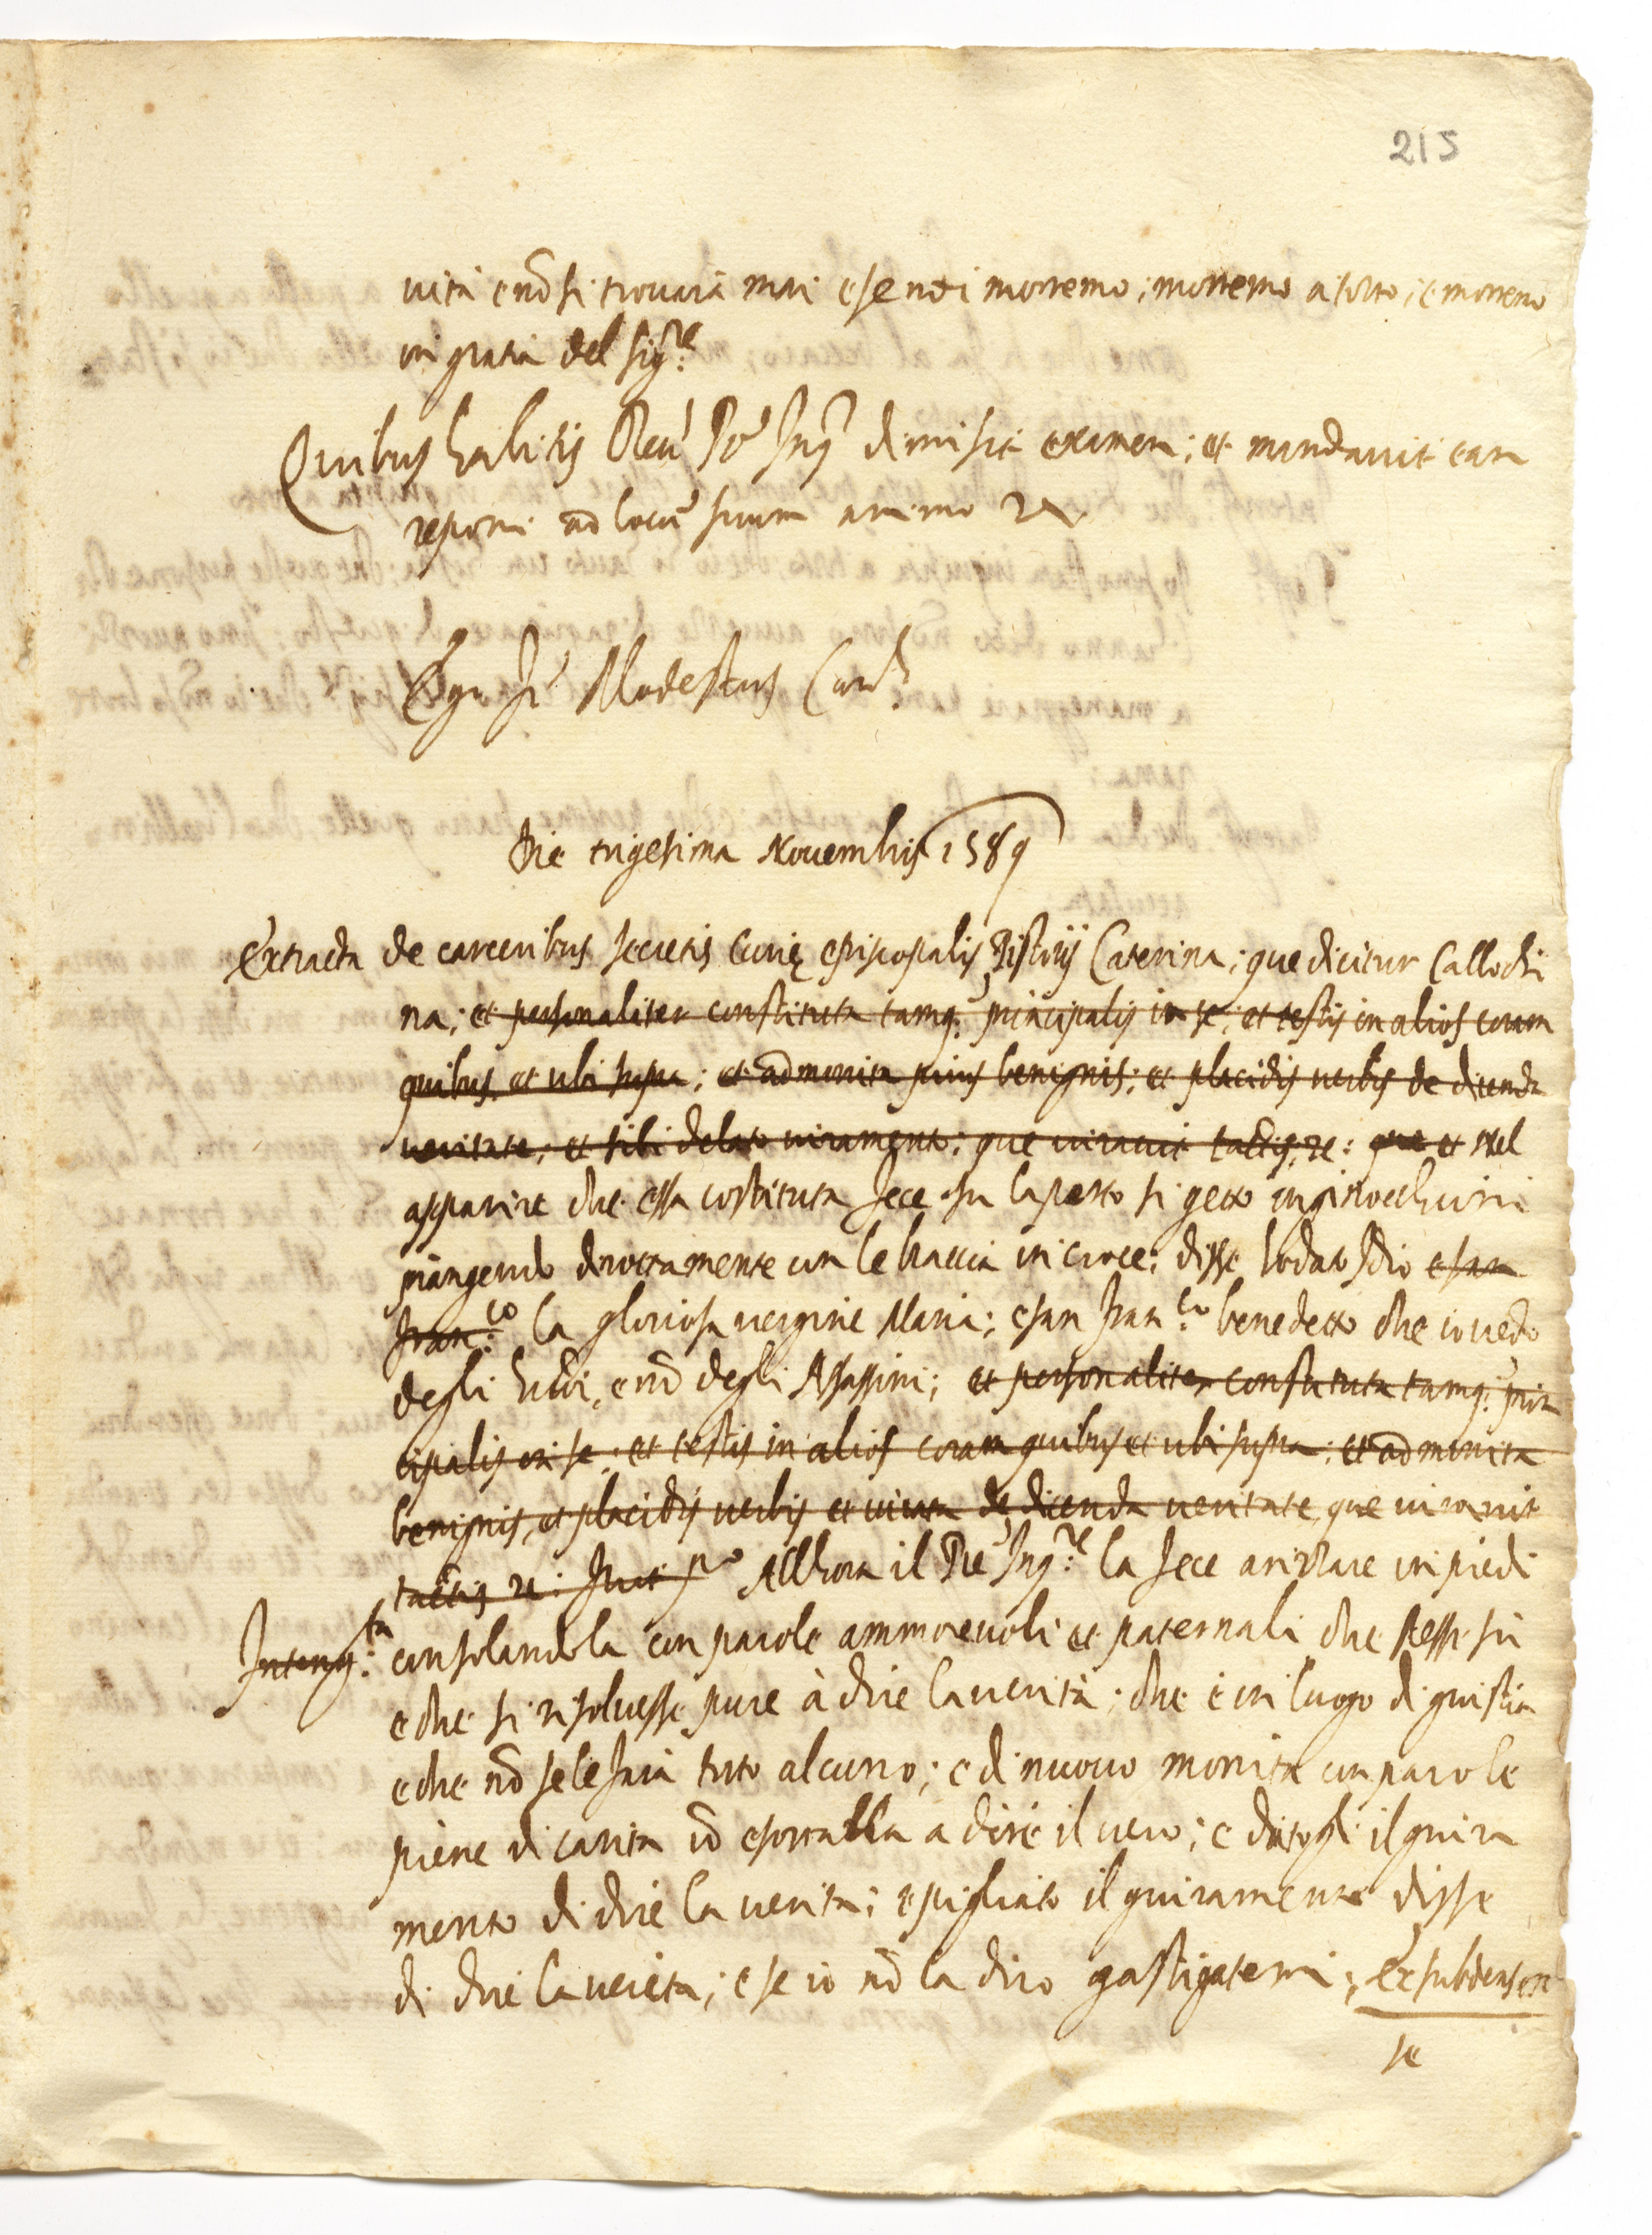 215
uità e nõ si trouarà mai e se noi morremo; morremo a torto; e morremo
in gratia del Sig.re
Quibus habitis Reu Pr Inq dimisit examen; et mandauit eam
reponi ad locũ suum animo &c
Ego fr Modestus Canc.
Die trigesima Nouembris 1589
Extracta de carceribus secretis Curię episcopalis Pistorij Caterina; que dicitur Callochi
na; et personaliter constituta tamq. principalis in se; et testis in alios coram
quibus, et ubi supra; et admonita prius benignis; et placidis uerbis de dicenda
ueritate; et sibi delato iuramento; que iurauit tactis, &c: que et Nel
apparire che essa costituta fece su la porta si gettò inginocchioni
piangendo dirottamente con le braccia in croce; disse lodato Idio e san
Fran.co la gloriosa uergine Maria; e san Fran.co benedetto che io uedo
degli hũoi, e nõ degli Assassini; et personaliter constituta tamq. prin
cipalis in se; et testis in alios coram quibus et ubi supra; et admonita
benignis, et placidis uerbis et iurata de dicenda ueritate, que iurauit
tactis &c: fuit p.o Allhora il Pre Inq.re la fece arizzare in piedi
Interog.ta consolandola con parole ammoreuoli et paternali che stesse sù
e che si risoluesse pure à dire la uerità; che è in luogo di giustitia
e che nõ se le farà torto alcuno; e di nuouo monita con parole
piene di carità ed esortatala a dire il uero; e datogli il giura
mento di dire la uerita; e pigliato il giuramento disse
di dire la uerita; e se io nõ la dirò gastigatemi; et subdens ex
se